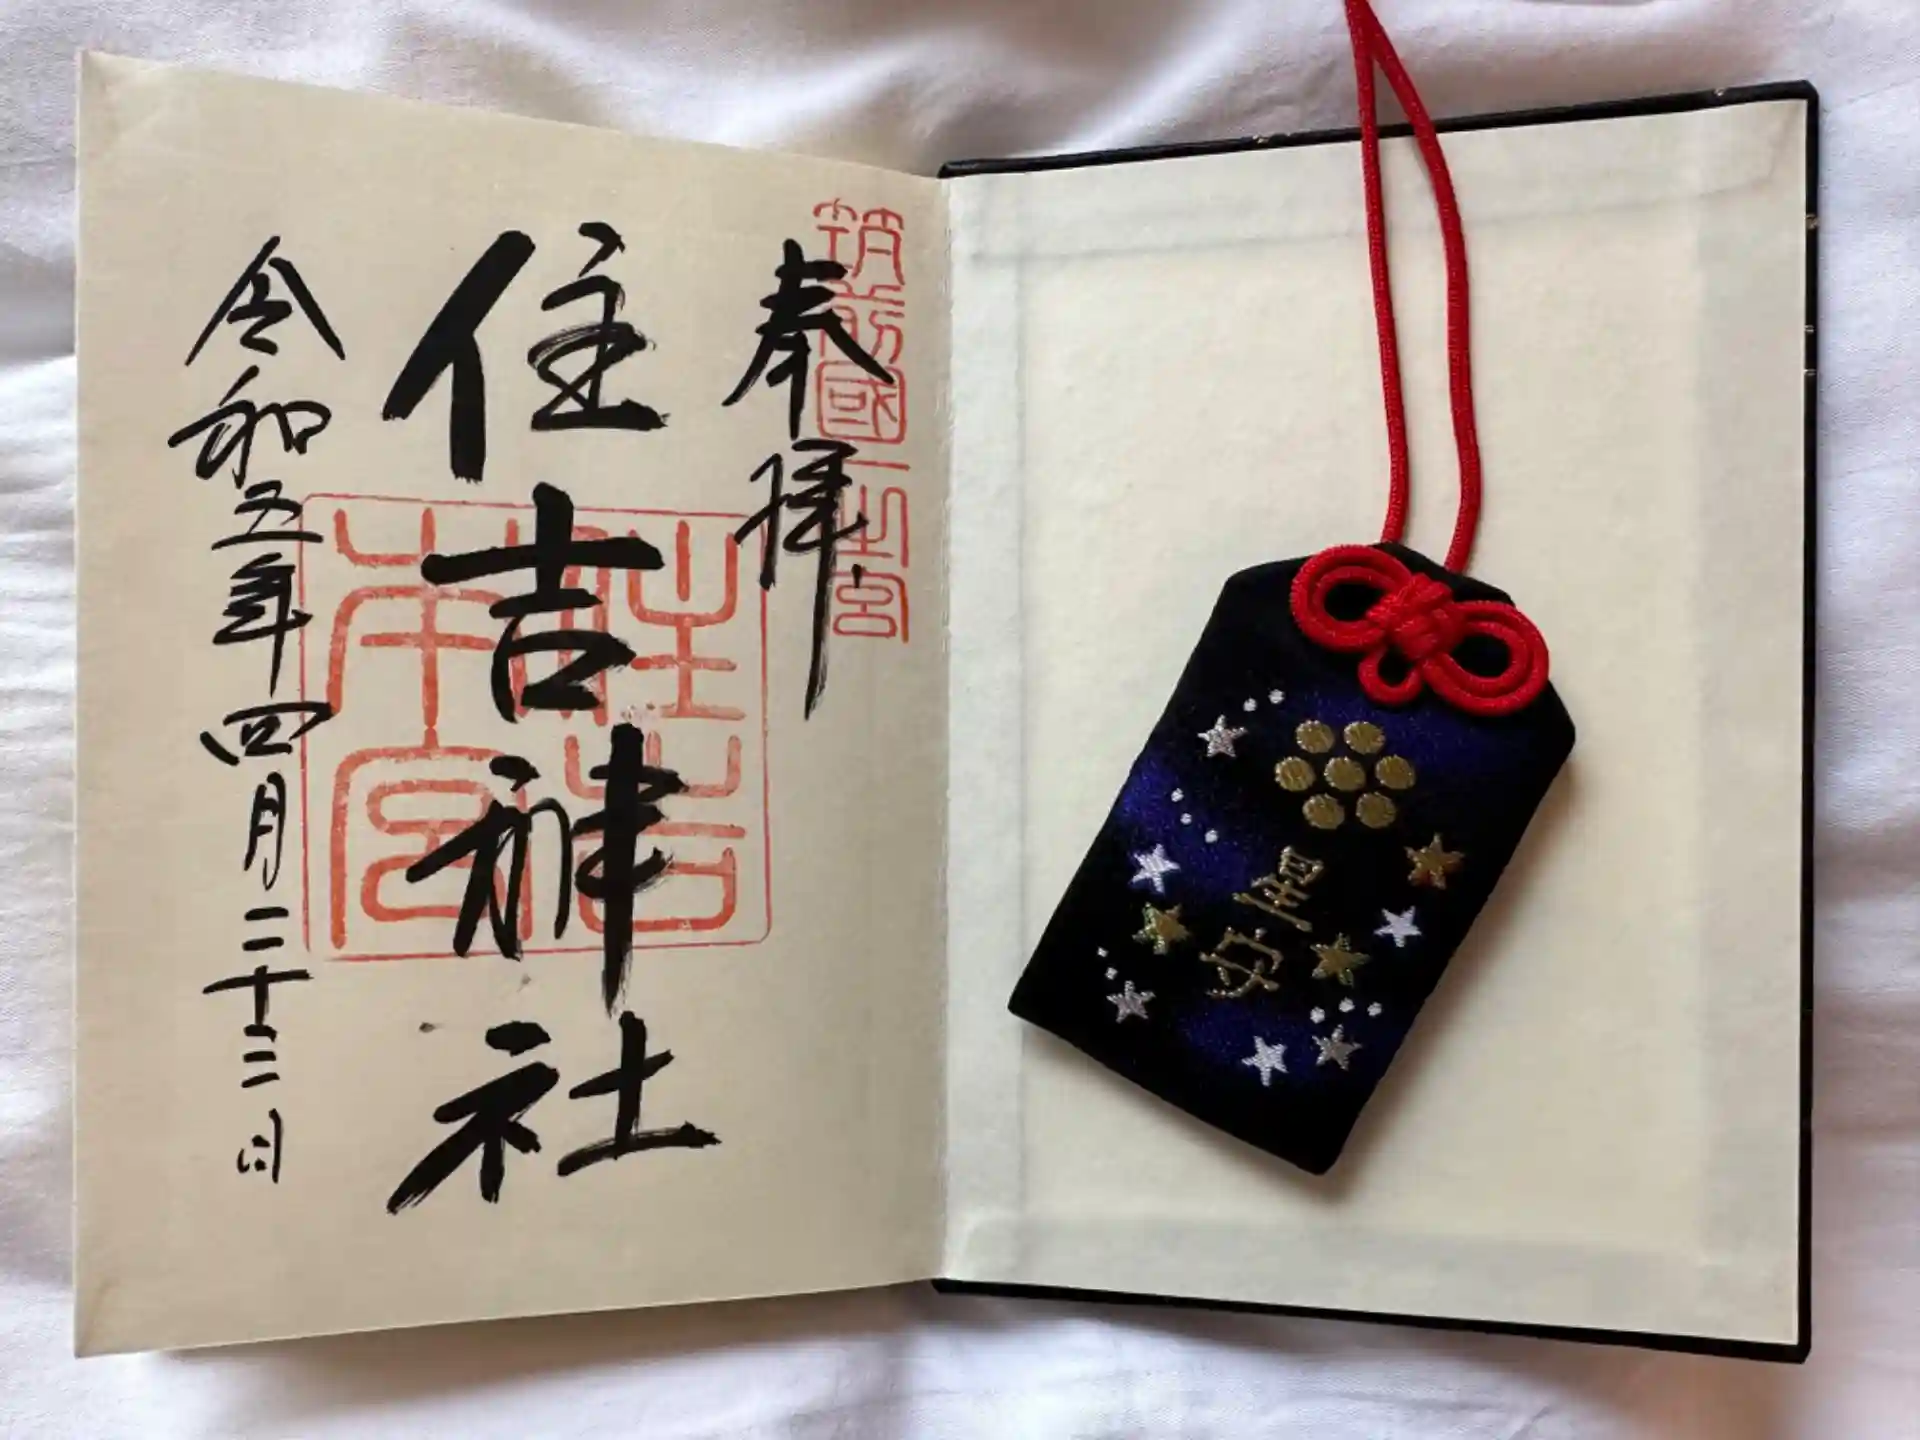 筑前國一之宮
奉拝
住吉神社
住吉本宮
令和五年四月二十三日
星守